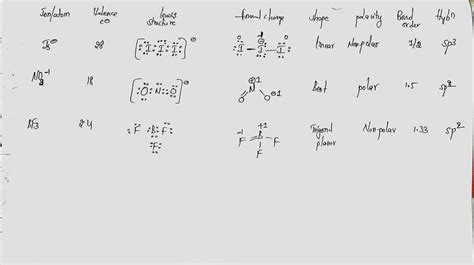 Ion/atom Valence e⊖ Lewis structure formal charge shape polarity Bond order Hybn
I3⊖ 28 [:I:I:I:]⊖ 0 -1 0 :I-I-I: linear Non-polar 1/2 sp3
NO2-1 18 [:O:N::O:]⊖ N O O⊖1 Bent polar 1.5 sp2
BF3 24 :F B F: :F: -1 +1 F B F F Trigonal planar Non-polar 1.33 sp2